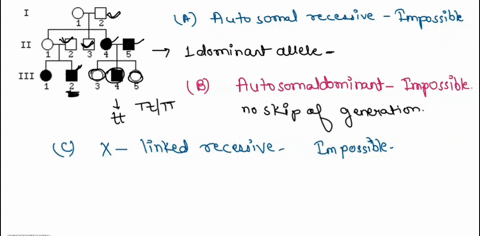 I
1 2
(A) Autosomal recessive - Impossible
II
1 2 3 4 5
→ 1 dominant allele -
III
1 2 3 4 5
(B) Autosomal dominant - Impossible.
tt TT/Tt
no skip of generation.
(C) X - linked recessive - Impossible -